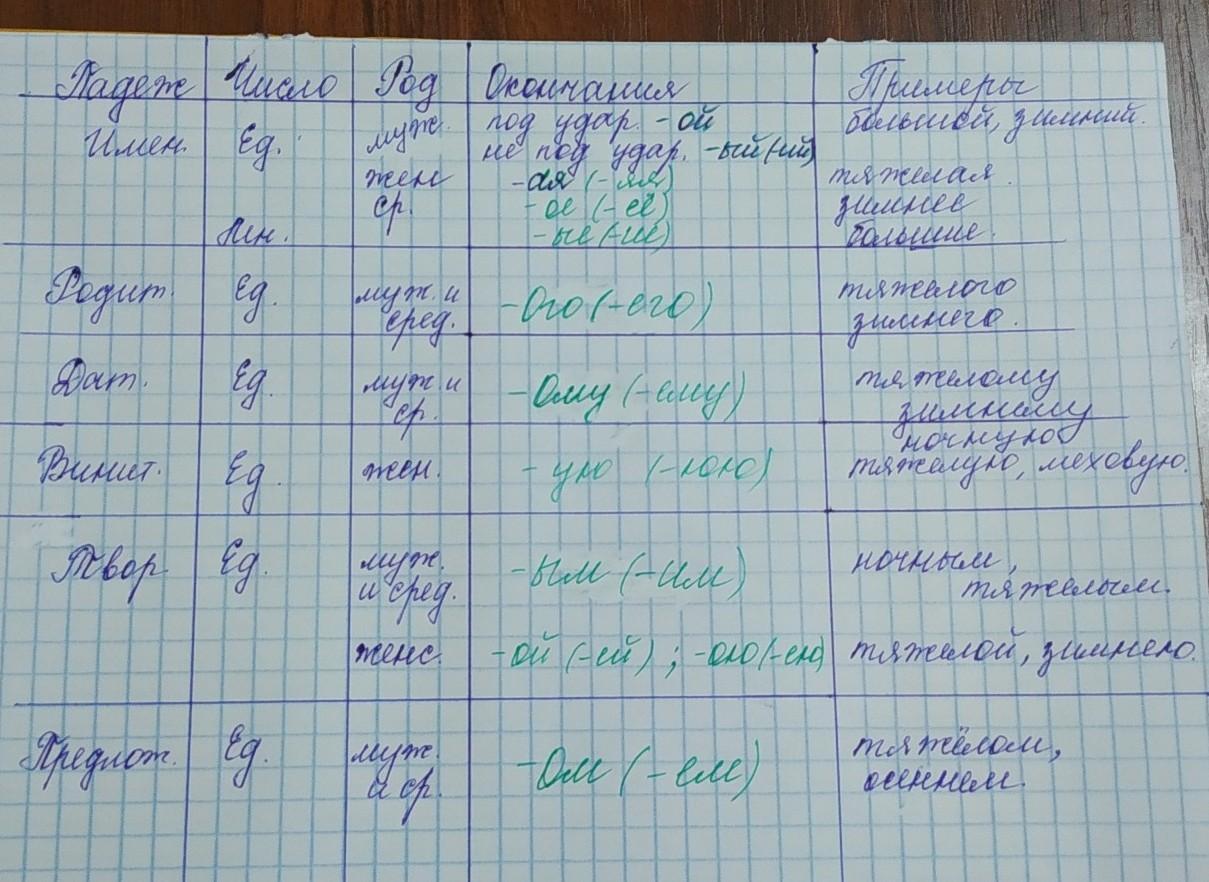 Падеж Число Род Окончания Примеры
Имен. Ед. муж. под удар. -ой большой, зимний.
не под удар. -ый(-ий)
жен -ая (-яя) тяжелая.
ср. -ое (-ее) зимнее
Мн. -ые (-ие) большие.
Родит. Ед. муж. и -Ого (-его) тяжелого
сред. зимнего.
Дат. Ед. муж. и -Ому (-ему) тяжелому
ср. зимнему
ночную
Винит. Ед. жен. -ую (-юю) тяжелую, меховую.
Твор Ед. муж. -ым (-им) ночным,
и сред. тяжелым.
женс. -ой (-ей) ; -ою (-ею) тяжелой, зимнею.
Предлож. Ед. муж. -Ом (-ем) тяжёлом,
и ср. осеннем.